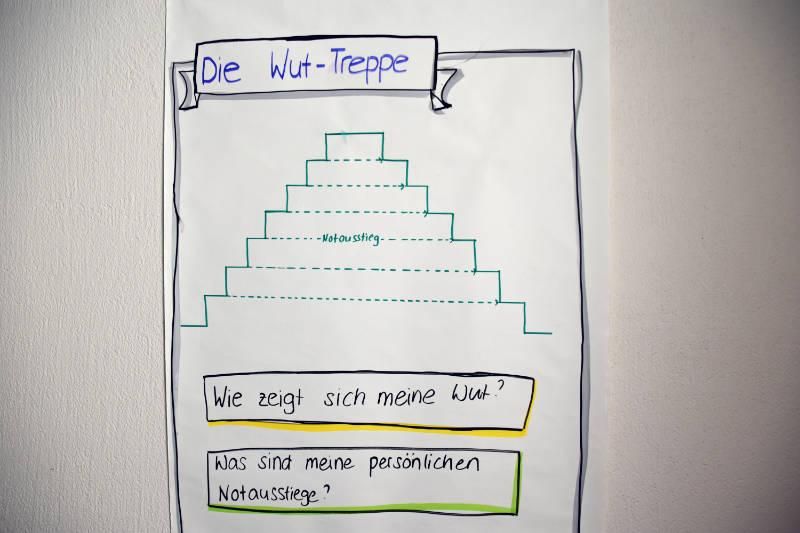 Die Wut-Treppe
Notausstieg
Wie zeigt sich meine Wut?
Was sind meine persönlichen
Notausstiege?